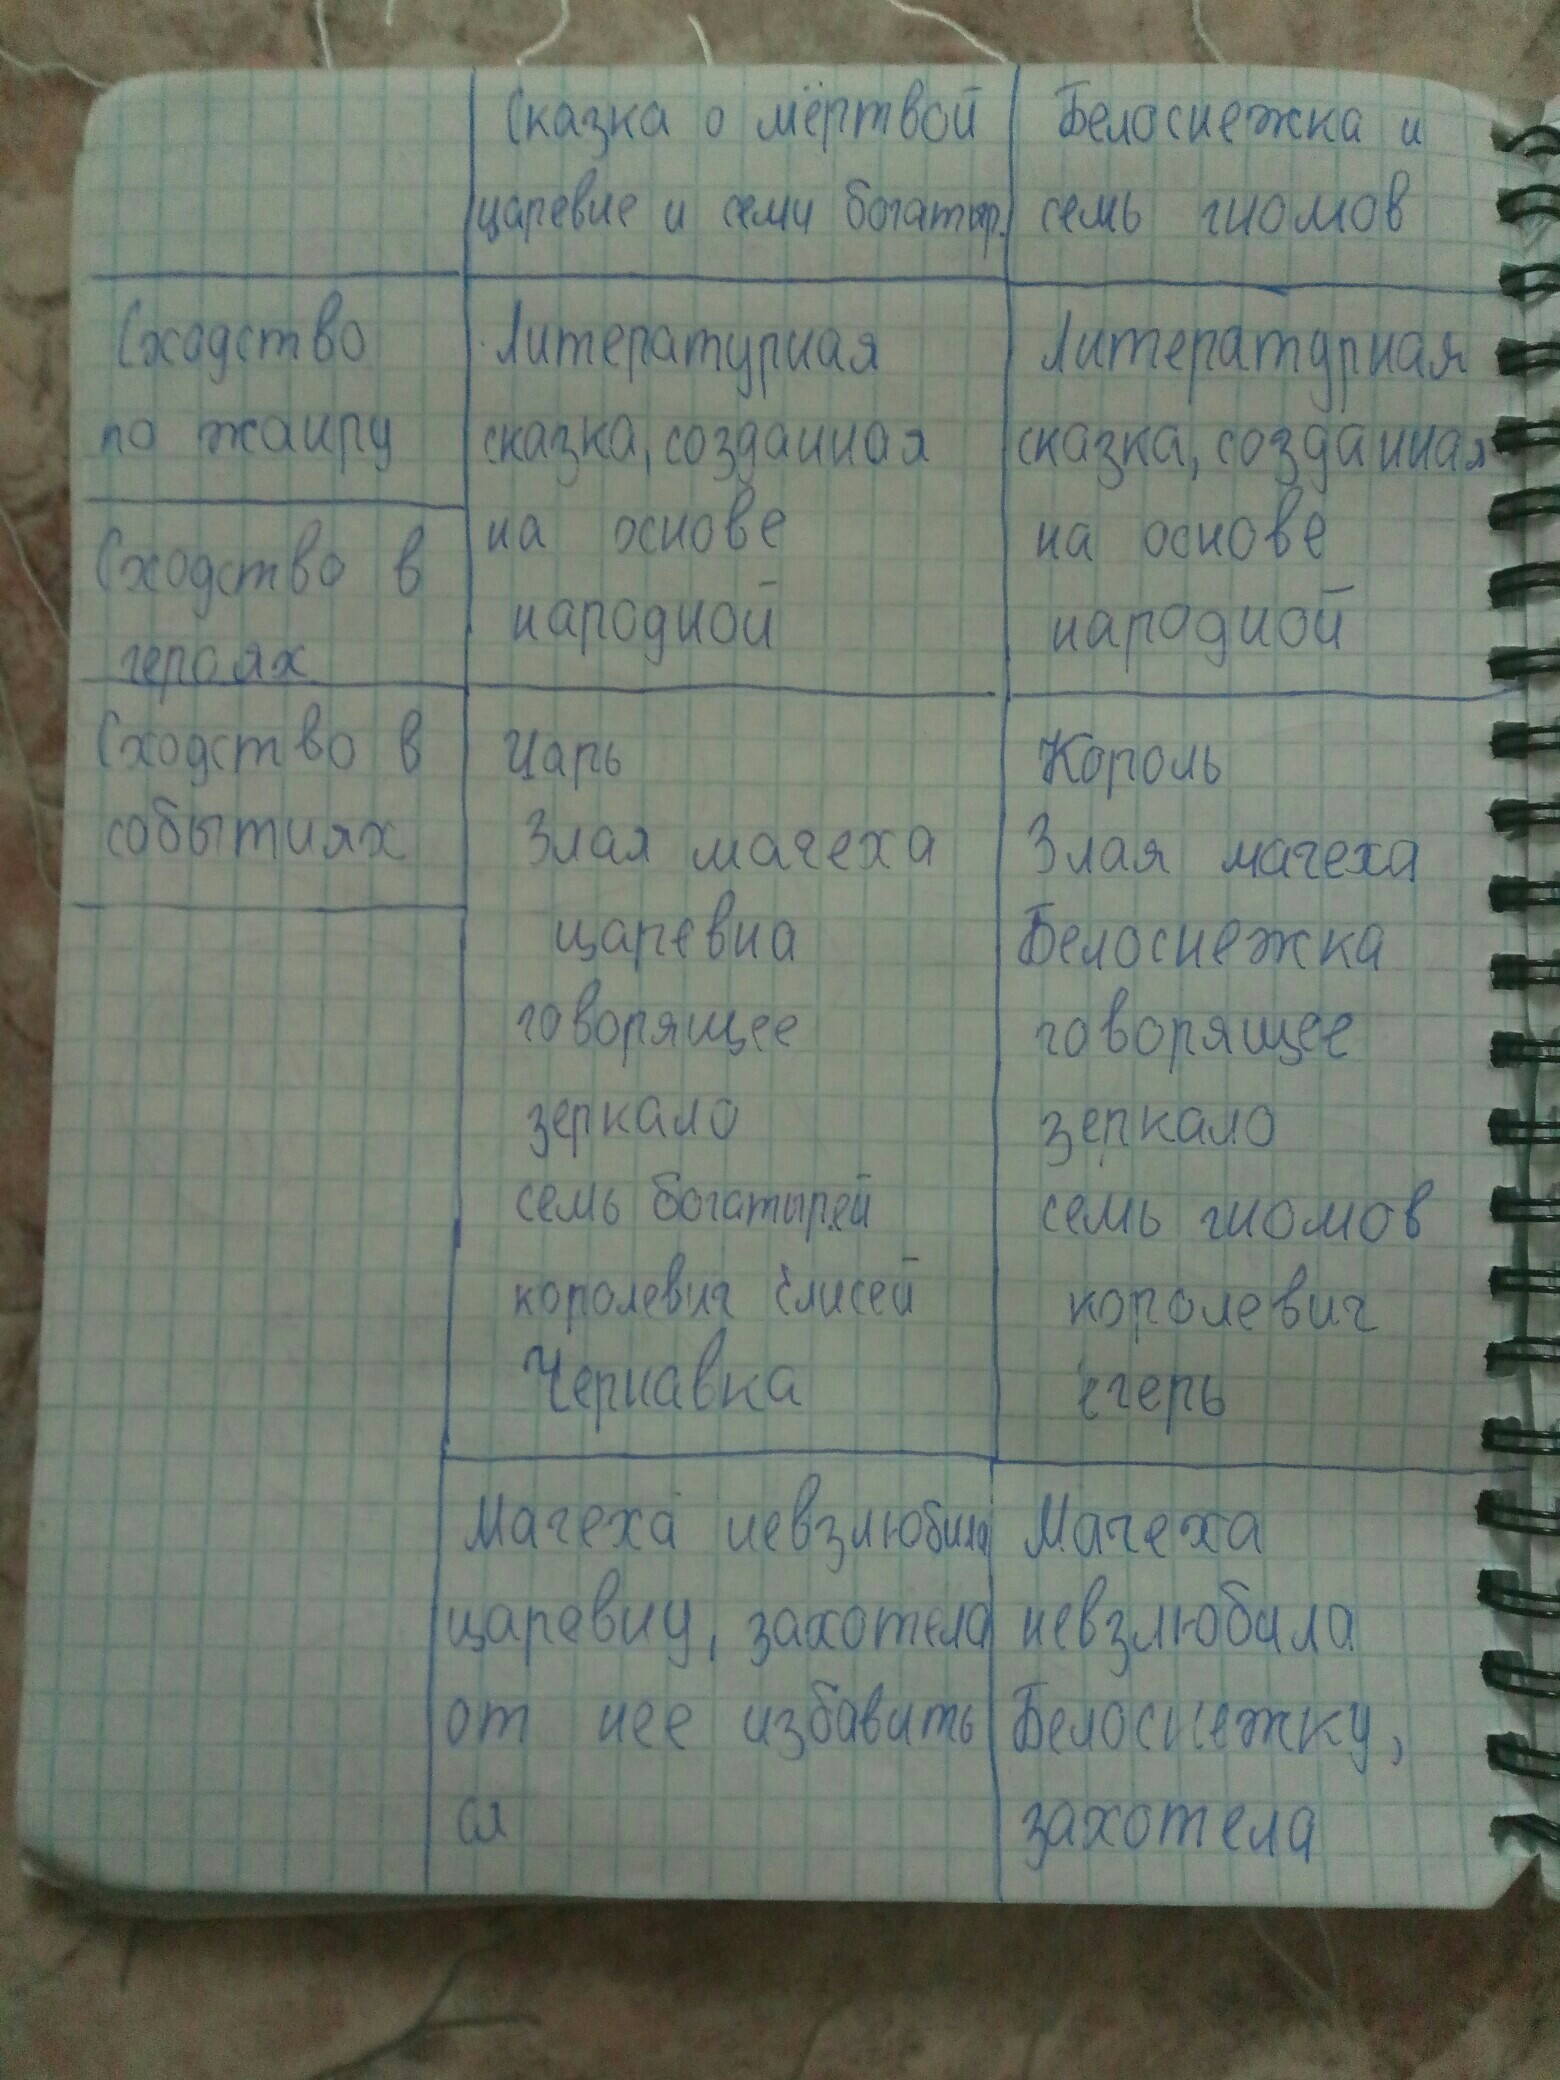 Сказка о мёртвой
царевне и семи богатыр.
Белоснежка и
семь гномов
Сходство
по жанру
Литературная
сказка, созданная
на основе
народной
Литературная
сказка, созданная
на основе
народной
Сходство в
героях
Сходство в
событиях
Царь
Злая мачеха
царевна
говорящее
зеркало
семь богатырей
королевич Елисей
Чернавка
Король
Злая мачеха
Белоснежка
говорящее
зеркало
семь гномов
королевич
егерь
Мачеха невзлюбила
царевну, захотела
от нее избавить
ся
Мачеха
невзлюбила
Белоснежку,
захотела